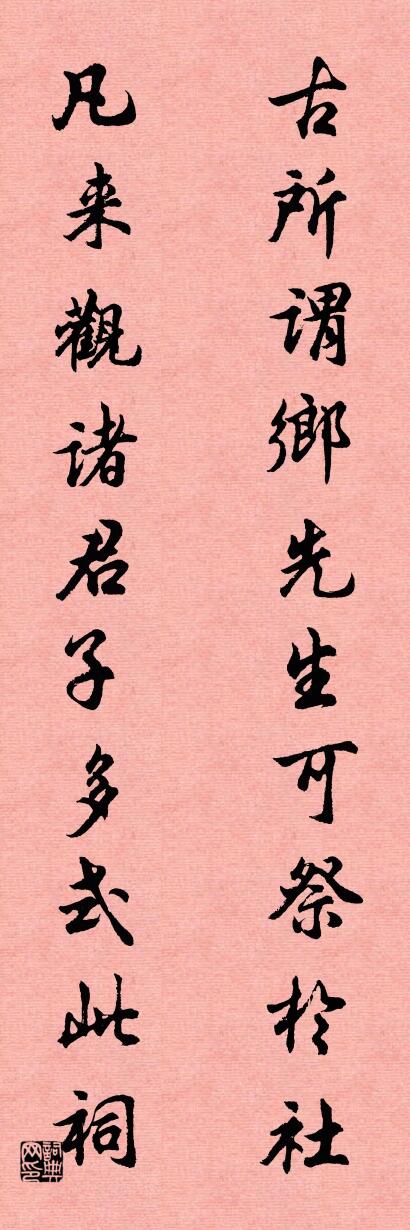 古所謂鄉先生可祭於社
凡来觀諸君子多式此祠
詞典网印